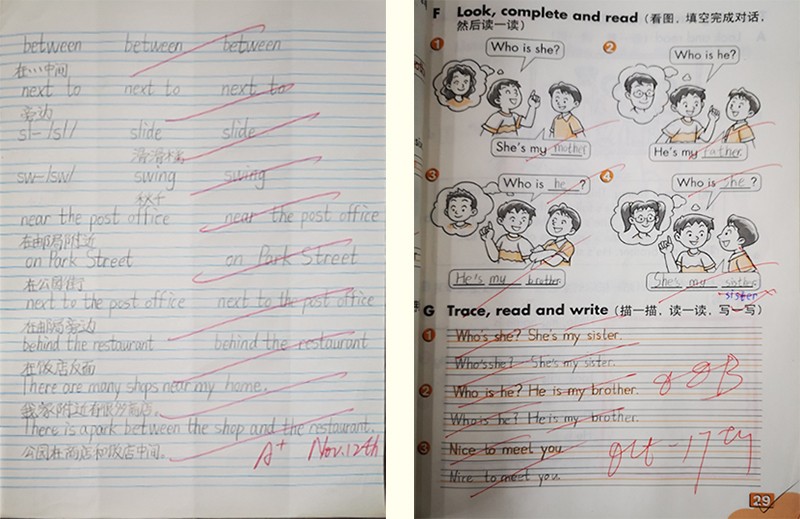 between between between
在...中间
next to next to next to
旁边
sl-/sl/ slide slide
滑滑梯
sw-/sw/ swing swing
秋千
near the post office near the post office
在邮局附近
on Park Street on Park Street
在公园街
next to the post office next to the post office
在邮局旁边
behind the restaurant behind the restaurant
在饭店后面
There are many shops near my home.
我家附近有很多商店。
There is a park between the shop and the restaurant.
公园在商店和饭店中间。
A+ Nov.12th
F Look, complete and read (看图，填空完成对话，
然后读一读)
1 Who is she?
She's my mother.
2 Who is he?
He's my father.
3 Who is he ?
He's my brother.
4 Who is she ?
She's my sister
sister
G Trace, read and write (描一描，读一读，写一写)
1 Who's she? She's my sister.
Who's she? She's my sister.
2 Who is he? He is my brother.
Who is he? He is my brother.
3 Nice to meet you.
Nice to meet you.
29